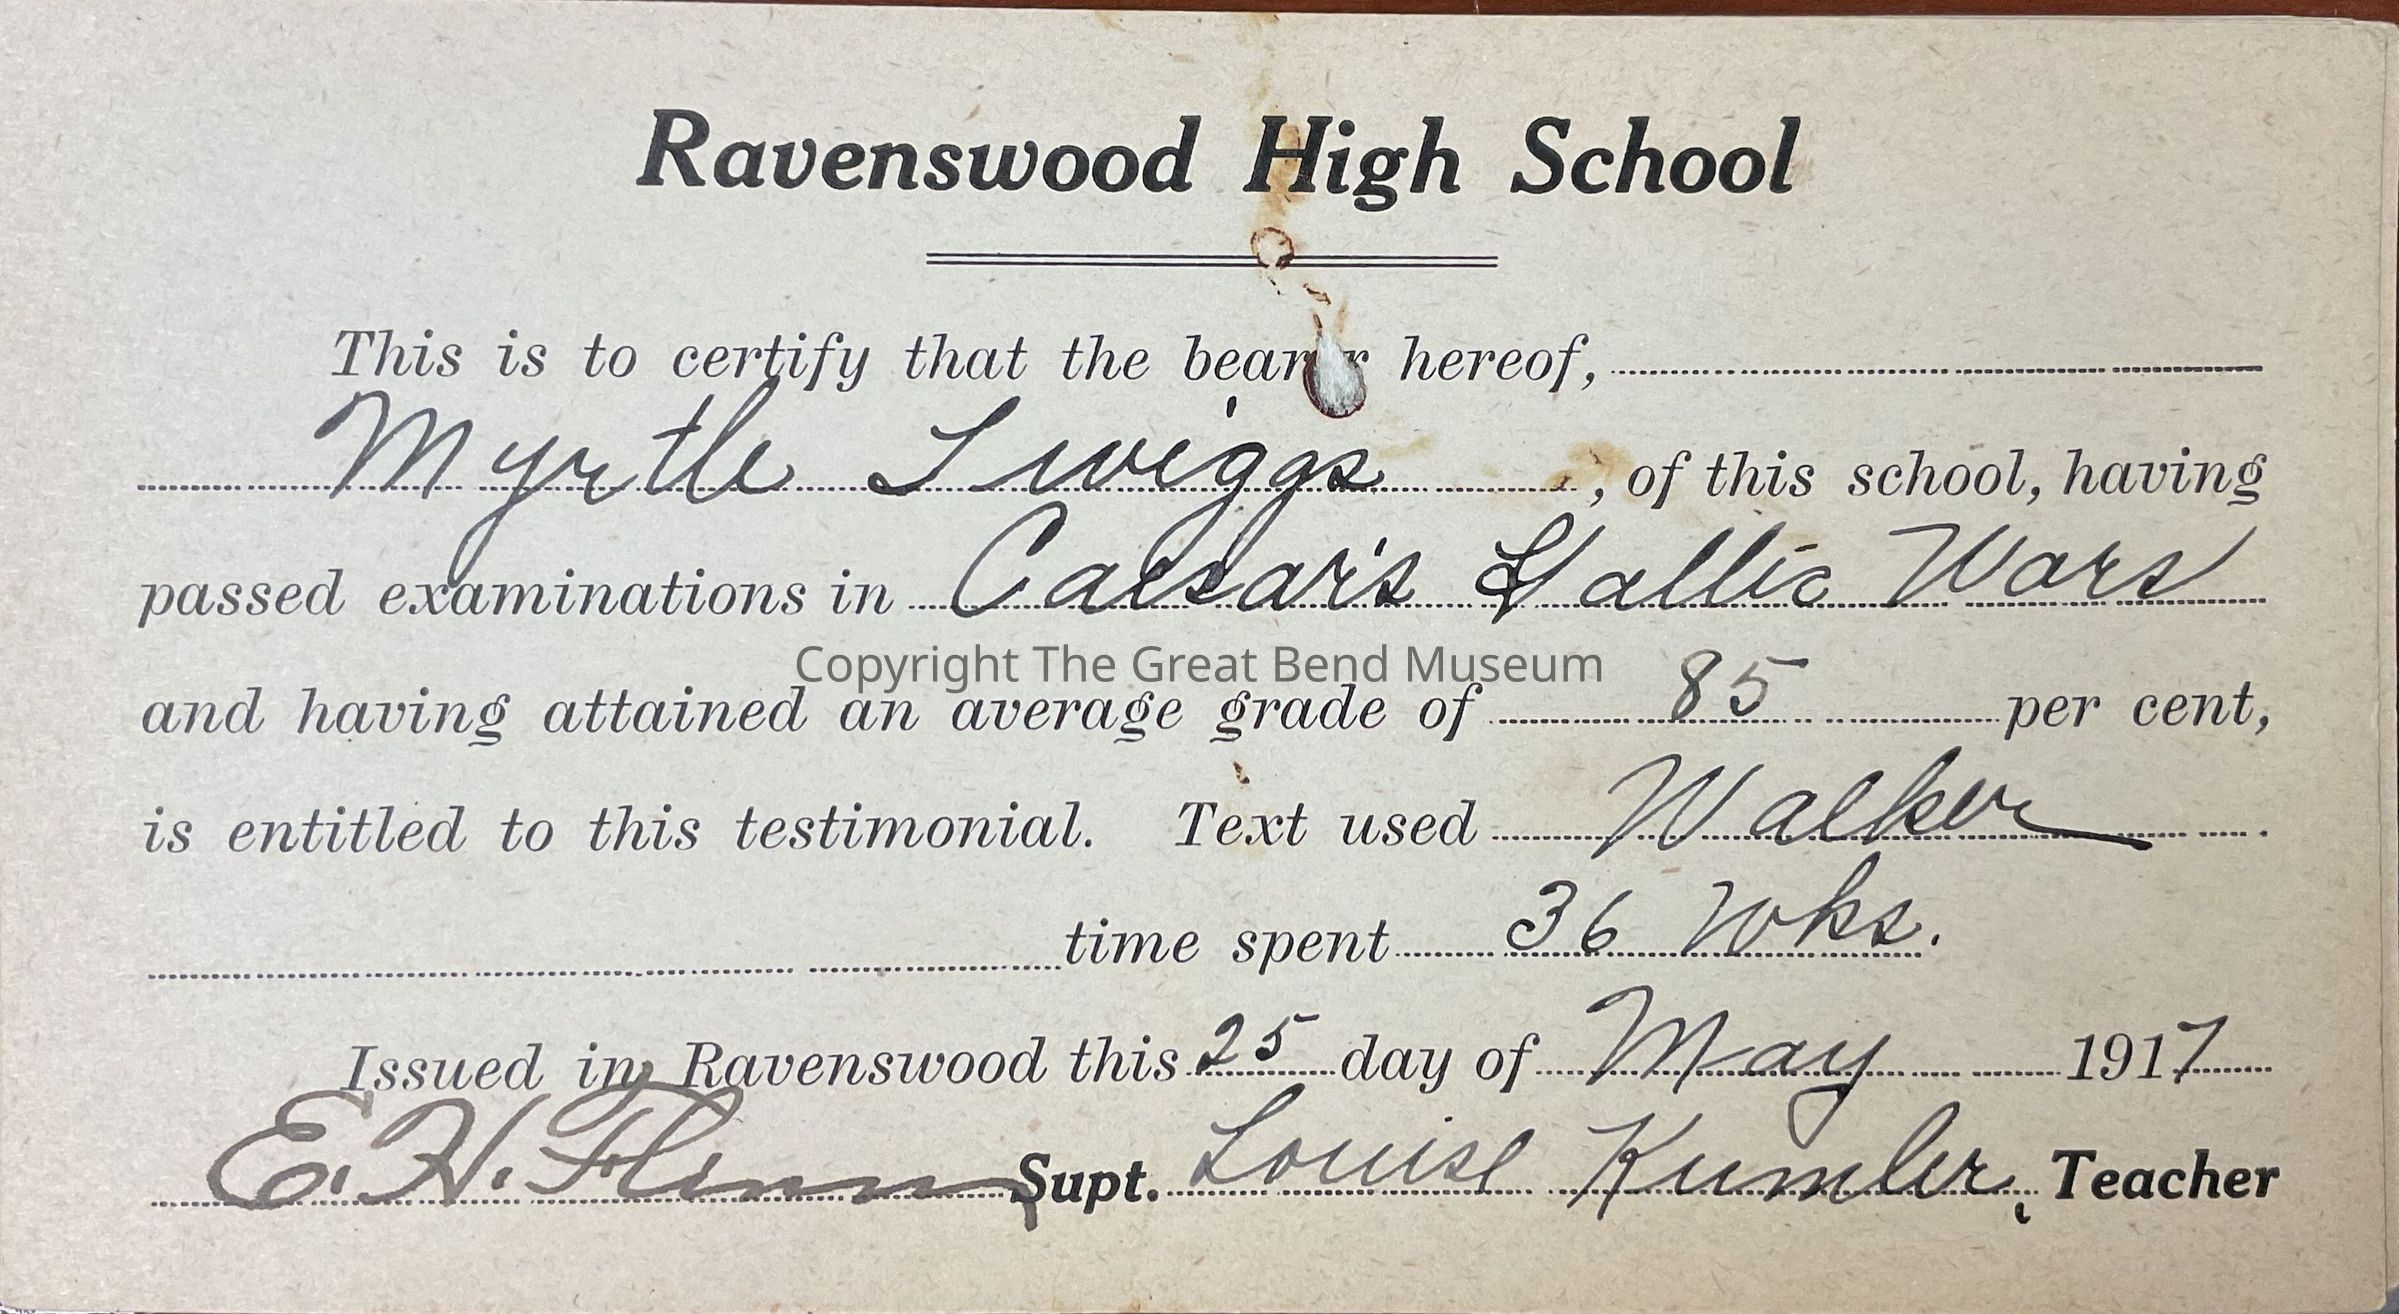 Ravenswood High School
This is to certify that the bearer hereof,
Myrtle Twiggs, of this school, having
passed examinations in Caesar's Gallic Wars
Copyright The Great Bend Museum
and having attained an average grade of 85 per cent,
is entitled to this testimonial. Text used Walker.
time spent 36 Wks.
Issued in Ravenswood this 25 day of May 1917
E. H. Flinn Supt. Louise Kumler, Teacher